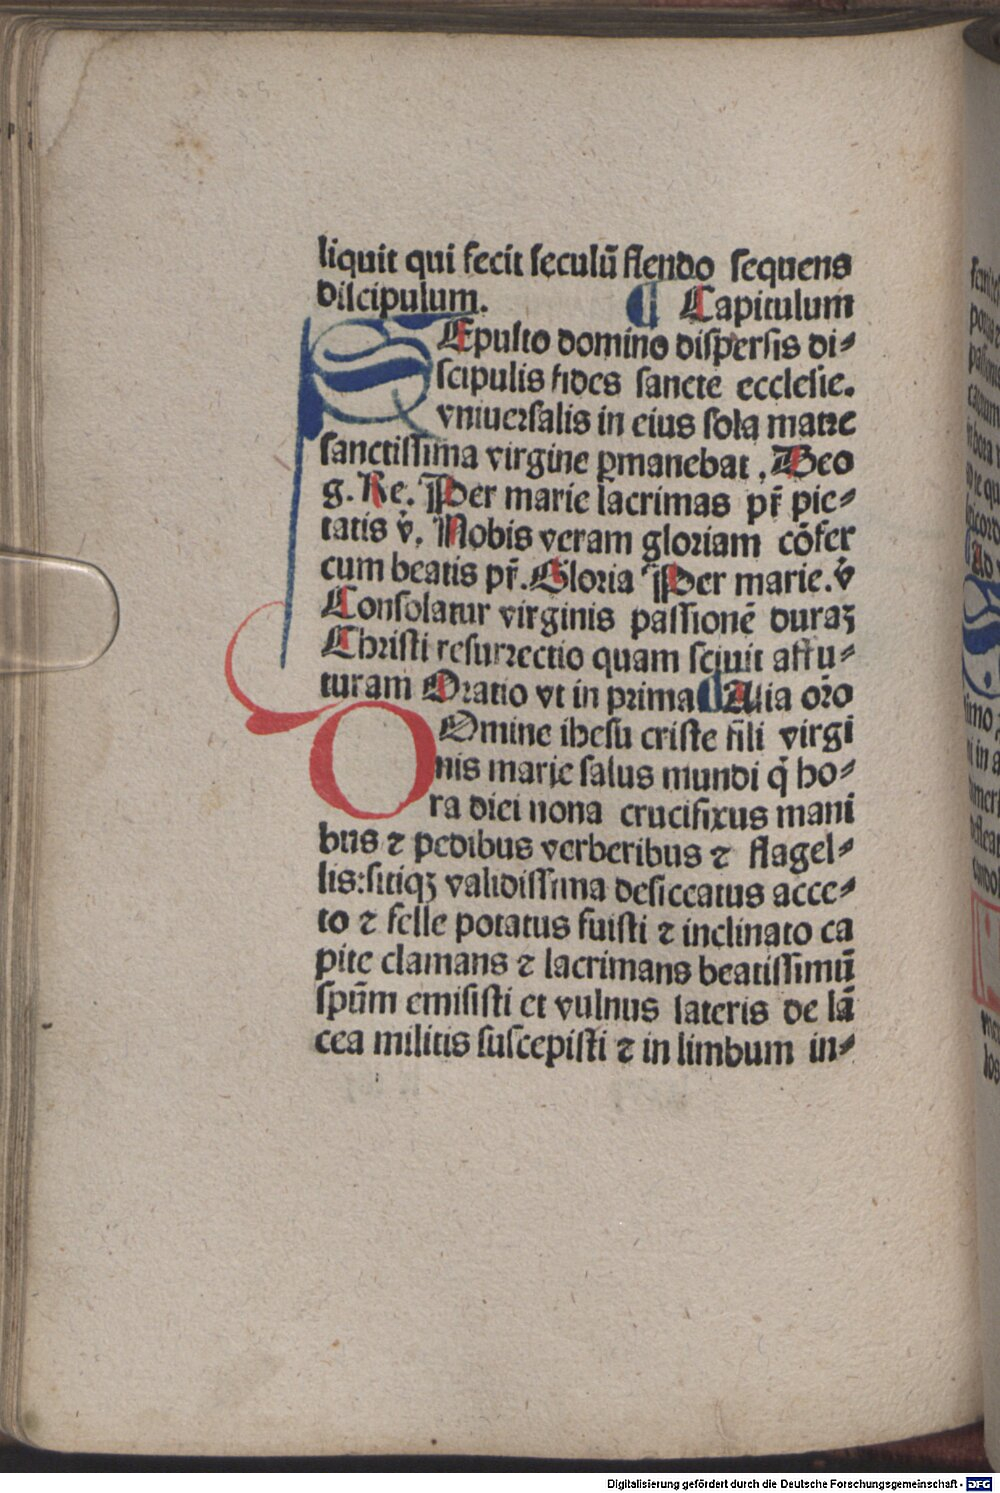 liquit qui fecit seculū flendo sequens
discipulum. ¶ Capitulum
SEpulto domino dispersis di⸗
scipulis fides sancte ecclesie.
vniuersalis in eius sola matre
sanctissima virgine ꝑmanebat . Deo
g. Re. Per marie lacrimas pr̄ pie⸗
tatis v̄. Nobis veram gloriam cōfer
cum beatis pr̄. Gloria Per marie. v̄
Consolatur virginis passionē duraꝫ
Christi resurrectio quam sciuit affu⸗
turam Oratio vt in prima ¶ Alia or̄o
DOmine ihesu criste fili virgi
nis marie salus mundi q̄ ho⸗
ra diei nona crucifixus mani
bus ⁊ pedibus verberibus ⁊ flagel⸗
lis:sitiqꝫ validissima desiccatus acce⸗
to ⁊ felle potatus fuisti ⁊ inclinato ca
pite clamans ⁊ lacrimans beatissimū
spūm emisisti et vulnus lateris de lā
cea militis suscepisti ⁊ in limbum in⸗
Digitalisierung gefördert durch die Deutsche Forschungsgemeinschaft - DFG